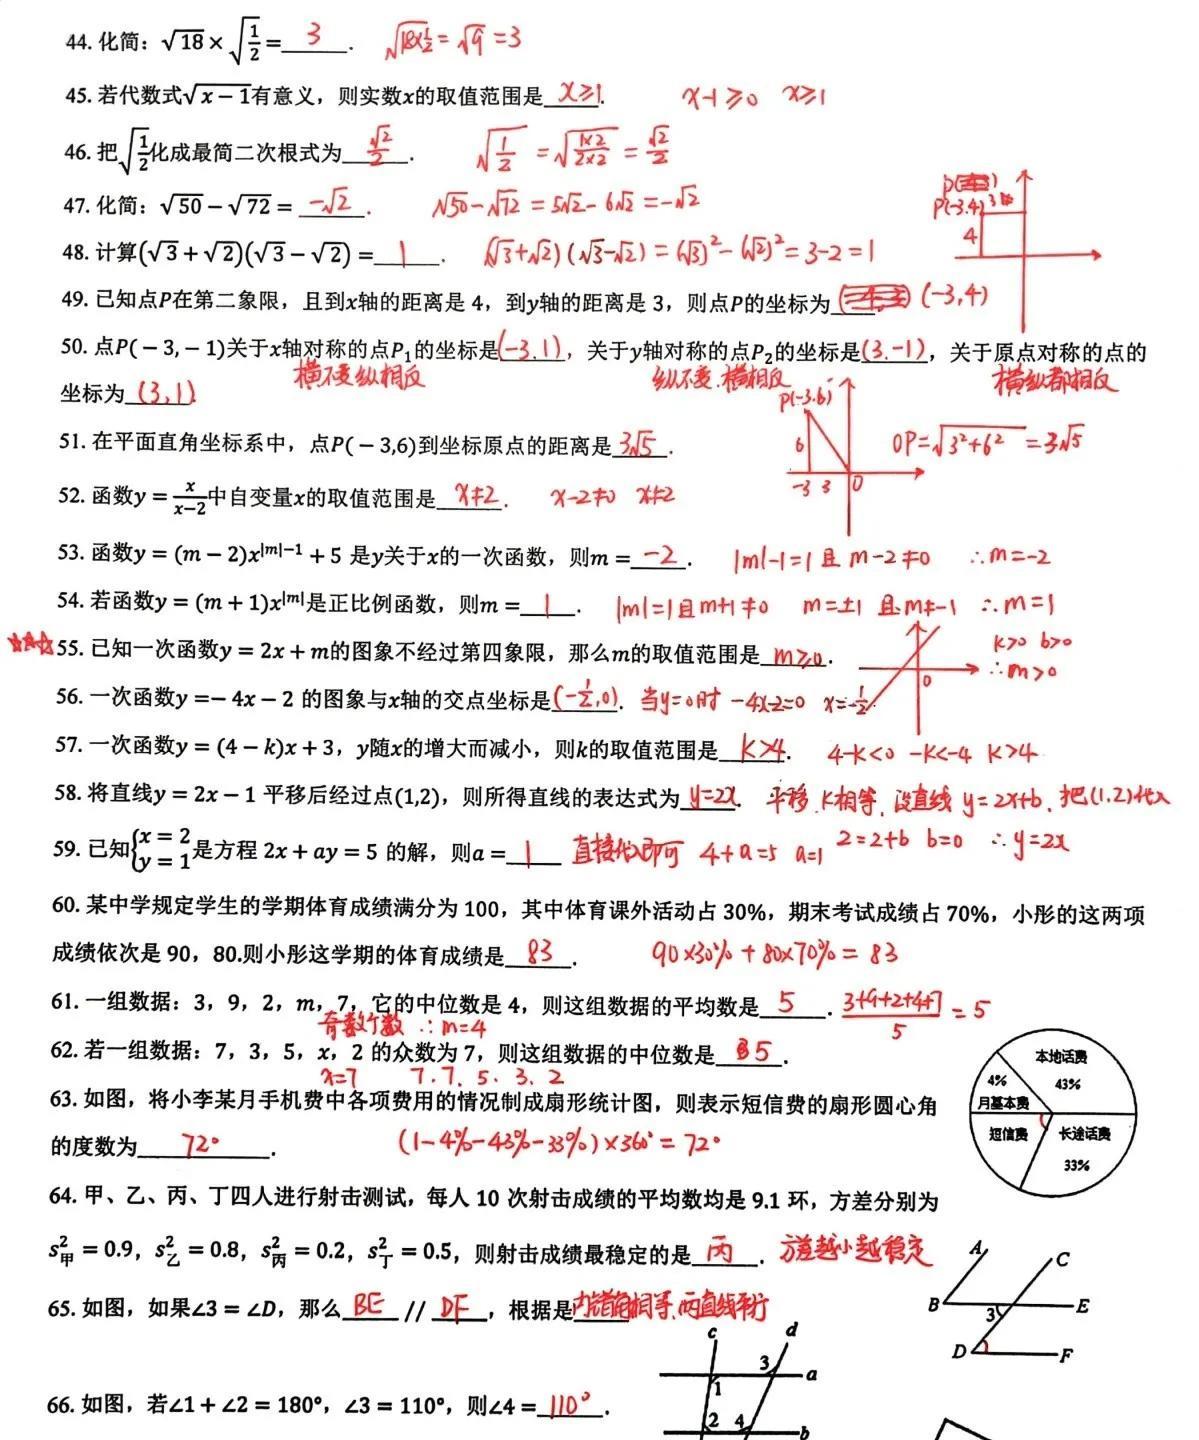 44. 化简：√18 × √(1/2) = 3. √(18×1/2) = √9 = 3
45. 若代数式√(x−1)有意义，则实数x的取值范围是 x≥1. x-1≥0 x≥1
46. 把√(1/2)化成最简二次根式为 √2/2. √(1/2) = √((1×2)/(2×2)) = √2/2
47. 化简：√50 − √72 = -√2. √50-√72 = 5√2-6√2 = -√2
48. 计算(√3 + √2)(√3 − √2) = 1. (√3+√2)(√3-√2) = (√3)²-(√2)² = 3-2 = 1
P(-3.4) 3
4
49. 已知点P在第二象限，且到x轴的距离是 4，到y轴的距离是 3，则点P的坐标为 (-3,4)
50. 点P(−3,−1)关于x轴对称的点P₁的坐标是(-3.1)，关于y轴对称的点P₂的坐标是(3.-1)，关于原点对称的点的
横不变纵相反 纵不变.横相反 横纵都相反
坐标为(3,1)
51. 在平面直角坐标系中，点P(−3,6)到坐标原点的距离是 3√5. P(-3.6) 6 -3 3 O OP=√(3²+6²) = 3√5
52. 函数y = x/(x−2)中自变量x的取值范围是 x≠2. x-2≠0 x≠2
53. 函数y = (m − 2)x^(|m|−1) + 5 是y关于x的一次函数，则m = -2. |m|-1=1 且 m-2≠0 ∴m=-2
54. 若函数y = (m + 1)x^|m|是正比例函数，则m = 1. |m|=1且m+1≠0 m=±1 且m≠-1 ∴m=1
☆☆☆ 55. 已知一次函数y = 2x + m的图象不经过第四象限，那么m的取值范围是 m≥0. 0 k>0 b>0
∴m>0
56. 一次函数y =− 4x − 2 的图象与x轴的交点坐标是(-1/2,0). 当y=0时 -4x-2=0 x=-1/2
57. 一次函数y = (4 − k)x + 3，y随x的增大而减小，则k的取值范围是 k>4. 4-k<0 -k<-4 k>4
58. 将直线y = 2x − 1 平移后经过点(1,2)，则所得直线的表达式为 y=2x. 平移.k相等.设直线 y=2x+b.把(1.2)代入
2=2+b b=0 ∴y=2x
59. 已知{x = 2 y = 1是方程 2x + ay = 5 的解，则a = 1 直接代入即可 4+a=5 a=1
60. 某中学规定学生的学期体育成绩满分为 100，其中体育课外活动占 30%，期末考试成绩占 70%，小彤的这两项
成绩依次是 90，80.则小彤这学期的体育成绩是 83. 90×30%+80×70% = 83
61. 一组数据：3，9，2，m，7，它的中位数是 4，则这组数据的平均数是 5. (3+9+2+4+7)/5 = 5
奇数个数 ∴m=4
62. 若一组数据：7，3，5，x，2 的众数为 7，则这组数据的中位数是 5.
x=7 7.7.5.3.2
本地话费
43%
4%
月基本费
短信费
长途话费
33%
63. 如图，将小李某月手机费中各项费用的情况制成扇形统计图，则表示短信费的扇形圆心角
的度数为 72°. (1-4%-43%-33%)×360° = 72°
64. 甲、乙、丙、丁四人进行射击测试，每人 10 次射击成绩的平均数均是 9.1 环，方差分别为
s²甲 = 0.9，s²乙 = 0.8，s²丙 = 0.2，s²丁 = 0.5，则射击成绩最稳定的是 丙. 方差越小越稳定
65. 如图，如果∠3 = ∠D，那么 BE // DF，根据是内错角相等.两直线平行
A C
B 3 E
D F
66. 如图，若∠1 + ∠2 = 180°，∠3 = 110°，则∠4 = 110°.
c d
3 a
1
2 4 b